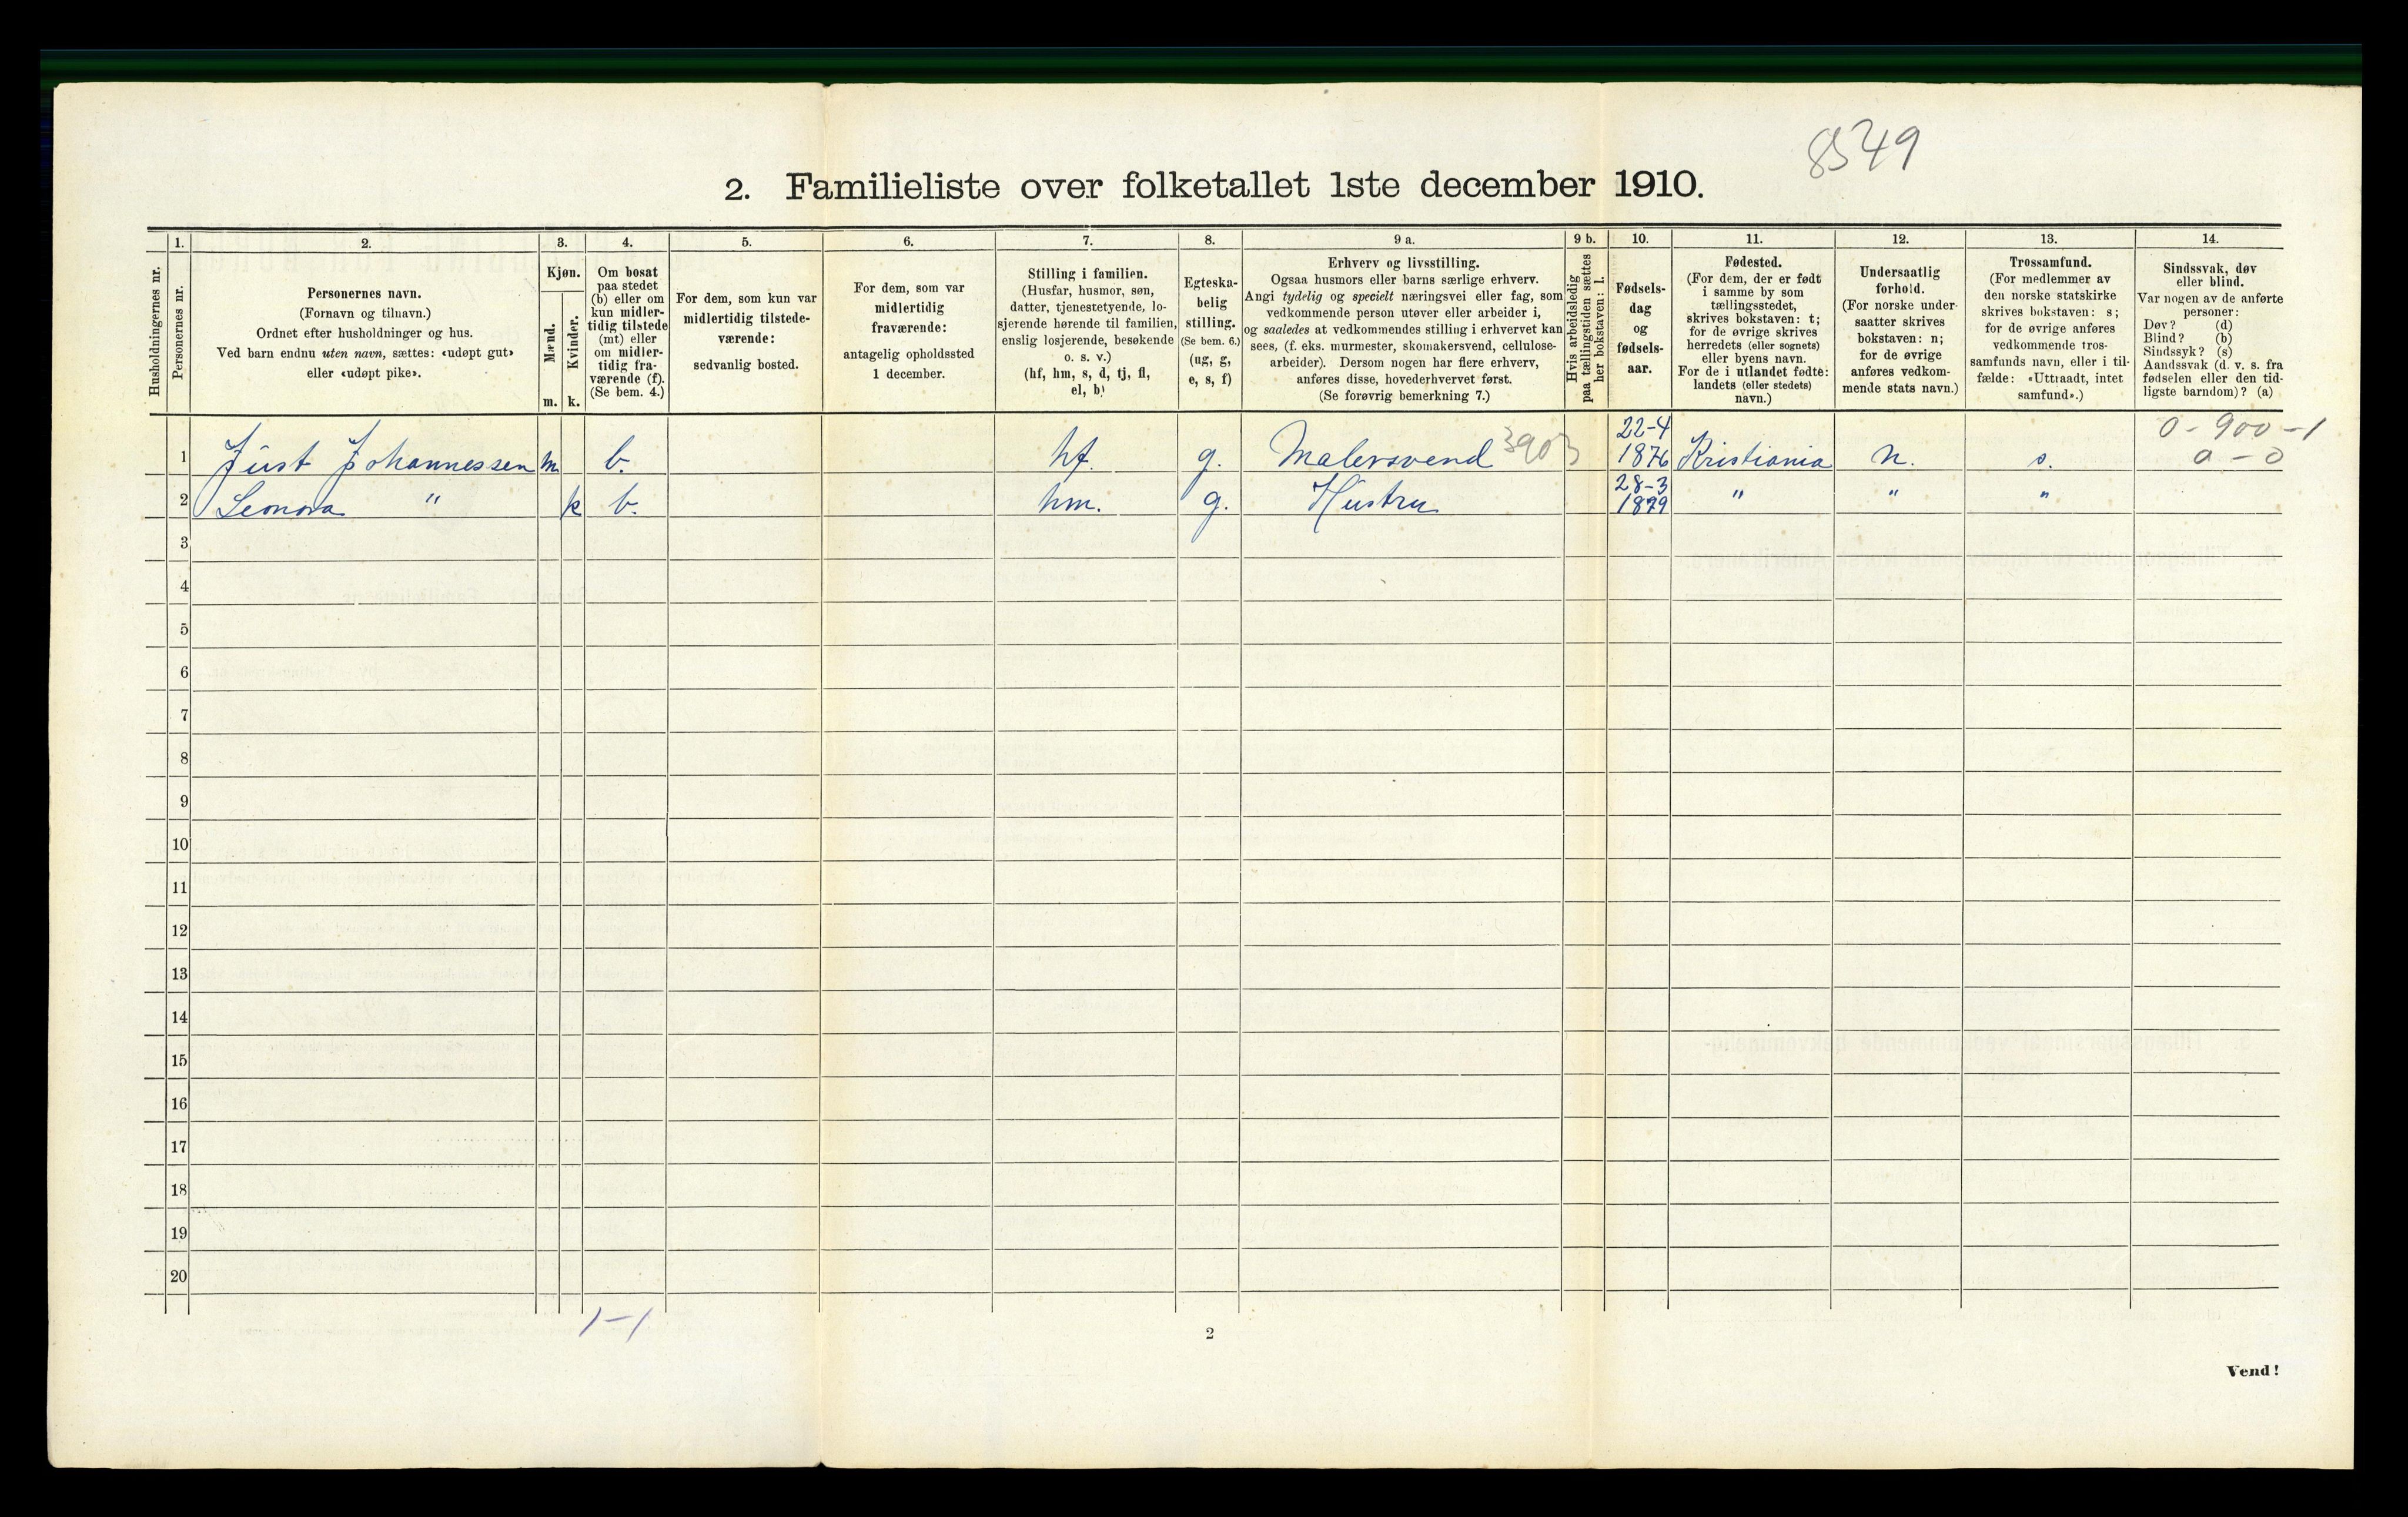 8549
2. Familieliste over folketallet 1ste december 1910.
1. 2. 3. 4. 5. 6. 7. 8. 9 a. 9 b. 10. 11. 12. 13. 14.
Husholdningernes nr.
Personernes nr.
Personernes navn.
(Fornavn og tilnavn.)
Ordnet efter husholdninger og hus.
Ved barn endnu uten navn, sættes: «udøpt gut»
eller «udøpt pike».
Kjøn.
Mænd.
m.
Kvinder.
k.
Om bosat
paa stedet
(b) eller om
kun midler-
tidig tilstede
(mt) eller
om midler-
tidig fra-
værende (f).
(Se bem. 4.)
For dem, som kun var
midlertidig tilstede-
værende:
sedvanlig bosted.
For dem, som var
midlertidig
fraværende:
antagelig opholdssted
1 december.
Stilling i familien.
(Husfar, husmor, søn,
datter, tjenestetyende, lo-
sjerende hørende til familien,
enslig losjerende, besøkende
o. s. v.)
(hf, hm, s, d, tj, fl,
el, b)
Egteska-
belig
stilling.
(Se bem. 6.)
(ug, g,
e, s, f)
Erhverv og livsstilling.
Ogsaa husmors eller barns særlige erhverv.
Angi tydelig og specielt næringsvei eller fag, som
vedkommende person utøver eller arbeider i,
og saaledes at vedkommendes stilling i erhvervet kan
sees, (f. eks. murmester, skomakersvend, cellulose-
arbeider). Dersom nogen har flere erhverv,
anføres disse, hovederhvervet først.
(Se forøvrig bemerkning 7.)
Hvis arbeidsledig
paa tællingstiden sættes
her bokstaven: l.
Fødsels-
dag
og
fødsels-
aar.
Fødested.
(For dem, der er født
i samme by som
tællingsstedet,
skrives bokstaven: t;
for de øvrige skrives
herredets (eller sognets)
eller byens navn.
For de i utlandet fødte:
landets (eller stedets)
navn.)
Undersaatlig
forhold.
(For norske under-
saatter skrives
bokstaven: n;
for de øvrige
anføres vedkom-
mende stats navn.)
Trossamfund.
(For medlemmer av
den norske statskirke
skrives bokstaven: s;
for de øvrige anføres
vedkommende tros-
samfunds navn, eller i til-
fælde: «Uttraadt, intet
samfund».)
Sindssvak, døv
eller blind.
Var nogen av de anførte
personer:
Døv? (d)
Blind? (b)
Sindssyk? (s)
Aandssvak (d. v. s. fra
fødselen eller den tid-
ligste barndom)? (a)
0-900-1
0-0
1 Just Johannessen m b. hf. g. Malersvend 3903 22-4 1876 Kristiania n. s.
2 Leonora " k b. hm. g. Hustru 28-3 1879 " " "
3
4
5
6
7
8
9
10
11
12
13
14
15
16
17
18
19
20
1-1
2
Vend!